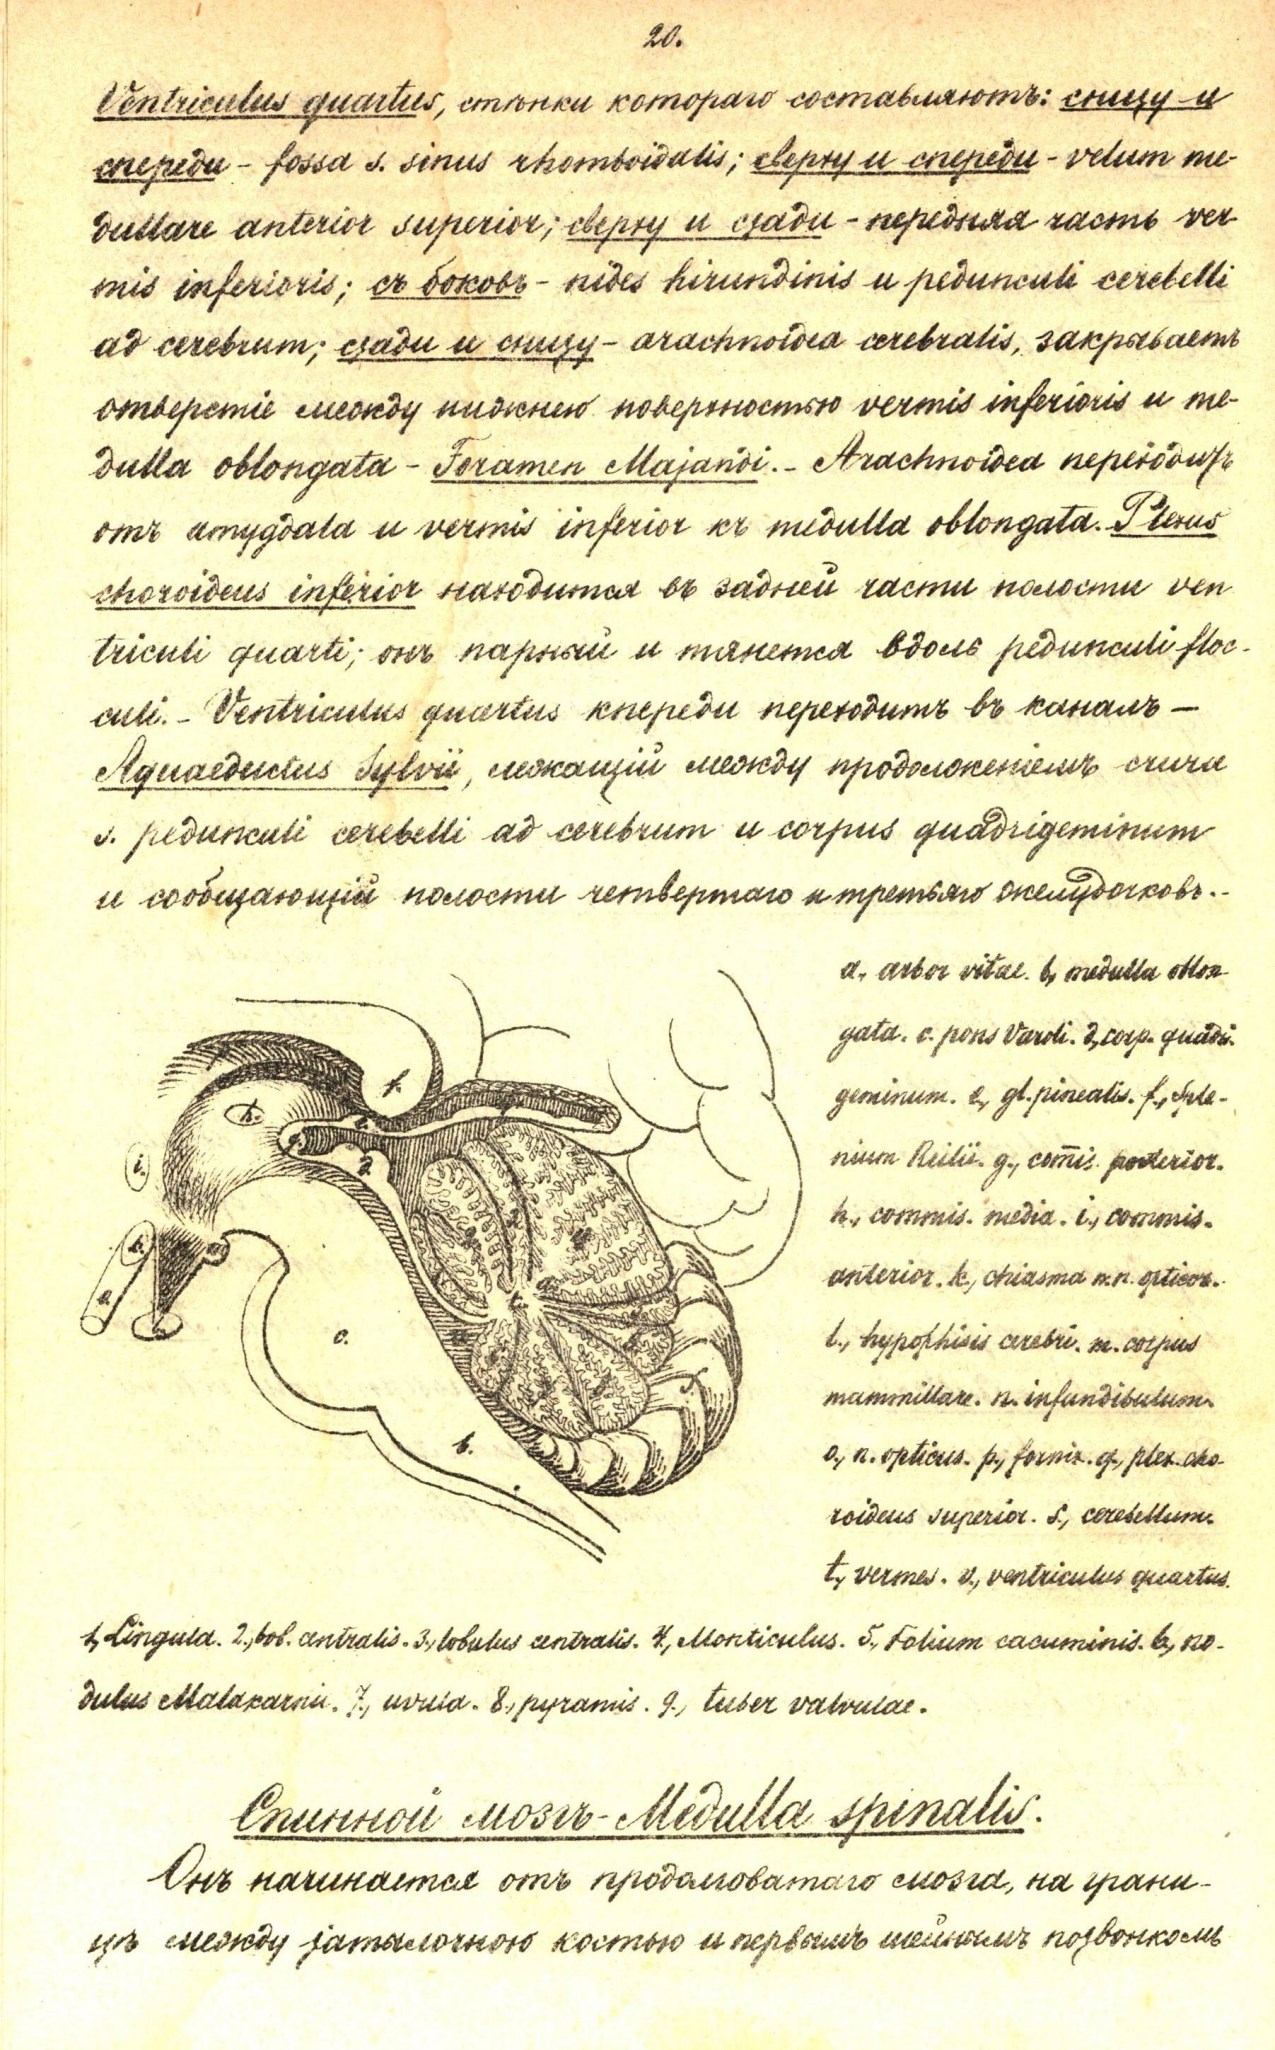 20.
Ventriculus quartus, стѣнки котораго составляютъ: снизу и
спереди - fossa s. sinus rhomboidalis; сверху и спереди - velum me-
dullare anterior superior; сверху и сзади - передняя часть ver-
mis inferioris; съ боковъ - nides hirundinis и pedunculi cerebelli
ad cerebrum; сзади и снизу - arachnoidea cerebralis, закрываетъ
отверстіе между нижнею поверхностью vermis inferioris и me-
dulla oblongata - Foramen Majandi. - Arachnoidea переходитъ
отъ amygdala и vermis inferior къ medulla oblongata. Plexus
choroideus inferior находится въ задней части полости ven
triculi quarti; онъ парный и тянется вдоль pedunculi floc-
culi. - Ventriculus quartus кпереди переходитъ въ каналъ -
Aquaeductus Sylvii, лежащій между продолженіемъ crura
s. pedunculi cerebelli ad cerebrum и corpus quadrigeminum
и сообщающій полости четвертаго и третьяго желудочковъ. -
a, arbor vitae. b, medulla oblon-
gata. c. pons Varoli. d, corp. quadri-
geminum. e, gl. pinealis. f., Sple-
nium Reilii. g., com̅is. posterior.
h., commis. media. i., commis.
anterior. k., chiasma n.n. opticor.
l., hypophisis cerebri. m. corpus
mammillare. n. infundibulum.
o., n. opticus. p., fornix. q., plex. cho-
roideus superior. s., cerebellum.
t., vermes. v., ventriculus quartus.
f.
h.
e.
g.
d.
i.
k.
m
o
n
l
c.
b.
a.
t.
v
s
1, Lingula. 2., lob. centralis. 3., lobulus centralis. 4., Monticulus. 5., Folium cacuminis. 6., no-
dulus Malakarnii. 7., uvula. 8., pyramis. 9., tuber valvulae.
Спинной мозгъ - Medulla spinalis.
Онъ начинается отъ продолговатаго мозга, на грани-
цѣ между затылочною костью и первымъ шейнымъ позвонкомъ